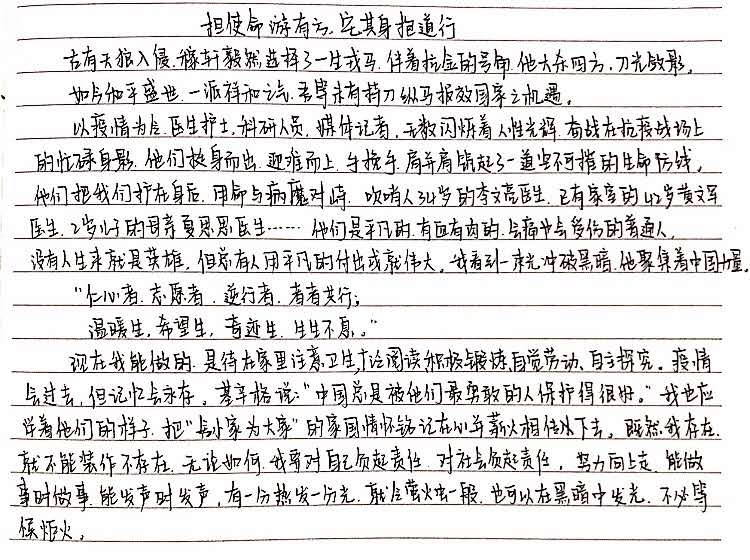 担使命游有方，定其身抱道行
古有天狼入侵，稼轩毅然选择了一生戎马，伴着抗金的号角，他大杀四方，刀光敛影。
如今和平盛世，一派祥和之气，吾辈未有持刀纵马报效国家之机遇。
以疫情为令，医生护士，科研人员，媒体记者，无数闪烁着人性光辉，奋战在抗疫战场上
的忙碌身影，他们挺身而出，迎难而上，手挽手，肩并肩筑起了一道坚不可摧的生命防线，
他们把我们护在身后，用命与病魔对峙，吹哨人34岁的李文亮医生，已有家室的42岁黄文军
医生，2岁儿子的母亲夏思思医生……他们是平凡的，有血有肉的，会痛也会受伤的普通人，
没有人生来就是英雄，但总有人用平凡的付出成就伟大。我看到一束光冲破黑暗，他聚集着中国力量。
"仁心者，志愿者，逆行者，者者共行；
温暖生，希望生，奇迹生，生生不息。"
现在我能做的，是待在家里注意卫生，广泛阅读，积极锻炼，自觉劳动，自主探究。疫情
会过去，但记忆会永存。基辛格说："中国总是被他们最勇敢的人保护得很好。"我也应
学着他们的样子，把"舍小家为大家"的家国情怀铭记在心并薪火相传下去。既然我存在，
就不能装作不存在，无论如何，我要对自己负起责任，对社会负起责任，努力向上走，能做
事时做事，能发声时发声，有一份热发一分光，就令萤火虫一般，也可以在黑暗中发光，不必等
候炬火。